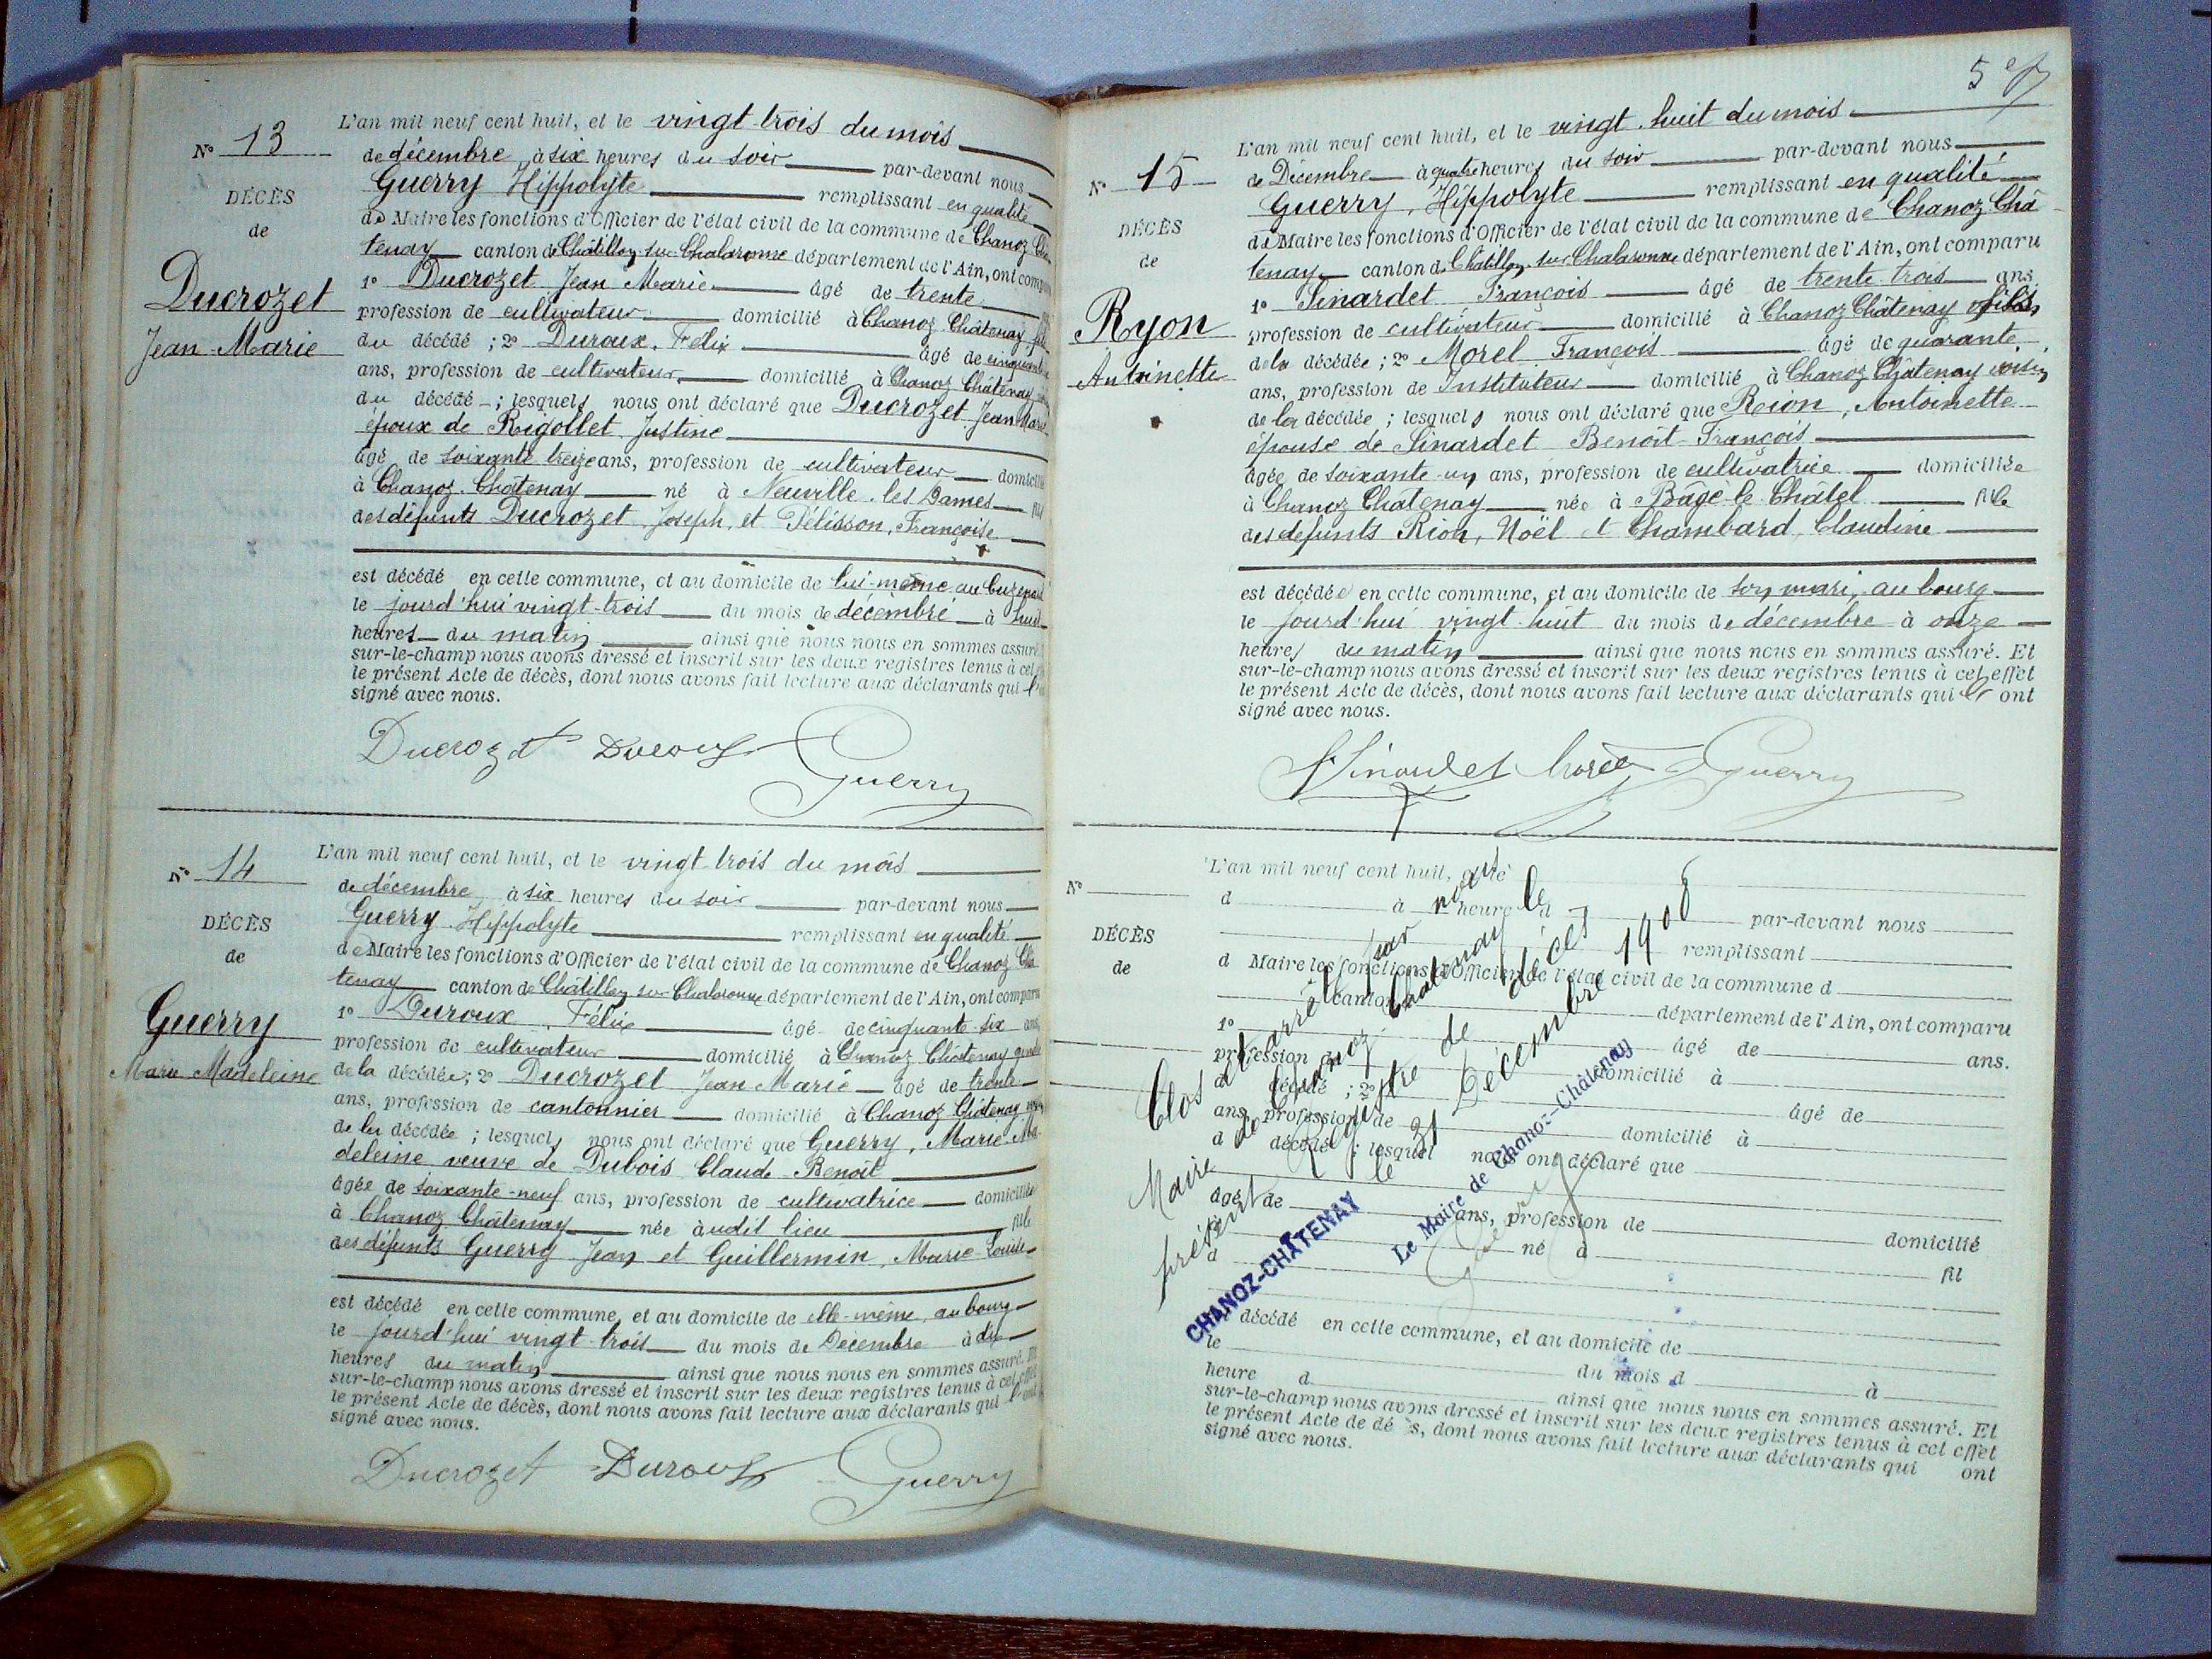 N° 13
DÉCÈS
de
Ducrozet
Jean-Marie
L'an mil neuf cent huit, et le vingt-trois du mois
de décembre à six heures du soir par-devant nous
Guerry Hippolyte remplissant en qualité
de Maire les fonctions d'Officier de l'état civil de la commune de Chanoz Châ
tenay canton de Châtillon sur Chalaronne département de l'Ain, ont comparu
1° Ducrozet Jean Marie âgé de trente
profession de cultivateur domicilié à Chanoz Châtenay fils
du décédé ; 2° Duroux, Félix âgé de cinquante
ans, profession de cultivateur domicilié à Chanoz Châtenay
du décédé ; lesquels nous ont déclaré que Ducrozet Jean Marie
époux de Rigollet Justine
âgé de soixante treize ans, profession de cultivateur domicilié
à Chanoz-Châtenay né à Neuville-les-Dames fils
des défunts Ducrozet Joseph, et Pélisson, Françoise
est décédé en cette commune, et au domicile de lui-même, au
le jourd'hui vingt-trois du mois de décembre à huit
heures du matin ainsi que nous nous en sommes assuré.
sur-le-champ nous avons dressé et inscrit sur les deux registres tenus à cet
le présent Acte de décès, dont nous avons fait lecture aux déclarants qui
signé avec nous.
Ducrozet Duroux Guerry
N° 14
DÉCÈS
de
Guerry
Marie Madeleine
L'an mil neuf cent huit, et le vingt-trois du mois
de décembre à six heures du soir par-devant nous
Guerry Hippolyte remplissant en qualité
de Maire les fonctions d'Officier de l'état civil de la commune de Chanoz Châ
tenay canton de Châtillon sur Chalaronne département de l'Ain, ont comparu
1° Duroux, Félix âgé de cinquante-six ans,
profession de cultivateur domicilié à Chanoz Châtenay gendre
de la décédée ; 2° Ducrozet Jean Marie âgé de trente
ans, profession de cantonnier domicilié à Chanoz Châtenay voisin
de la décédée ; lesquels nous ont déclaré que Guerry, Marie Ma
deleine veuve de Dubois Claude Benoît
âgée de soixante-neuf ans, profession de cultivatrice domiciliée
à Chanoz Châtenay née audit lieu fille
des défunts Guerry Jean et Guillermin, Marie-Louise
est décédé en cette commune, et au domicile de elle-même, au bourg
le jourd'hui vingt-trois du mois de Décembre à dix
heures du matin ainsi que nous nous en sommes assuré. Et
sur-le-champ nous avons dressé et inscrit sur les deux registres tenus à cet effet
le présent Acte de décès, dont nous avons fait lecture aux déclarants qui l'ont
signé avec nous.
Ducrozet Duroux Guerry
N° 15
DÉCÈS
de
Ryon
Antoinette
L'an mil neuf cent huit, et le vingt-huit du mois
de Décembre à quatre heures du soir par-devant nous
Guerry, Hippolyte remplissant en qualité
de Maire les fonctions d'Officier de l'état civil de la commune de Chanoz Châ
tenay canton de Châtillon sur Chalaronne département de l'Ain, ont comparu
1° Sinardet François âgé de trente trois ans,
profession de cultivateur domicilié à Chanoz Châtenay fils
de la décédée ; 2° Morel François âgé de quarante
ans, profession de Instituteur domicilié à Chanoz Châtenay voisin
de la décédée ; lesquels nous ont déclaré que Rion, Antoinette
épouse de Sinardet Benoît-François
âgée de soixante-un ans, profession de cultivatrice domiciliée
à Chanoz Châtenay née à Bâgé-le-Châtel fille
des défunts Rion, Noël et Chambard, Claudine
est décédée en cette commune, et au domicile de son mari, au bourg
le jourd'hui vingt-huit du mois de décembre à onze
heures du matin ainsi que nous nous en sommes assuré. Et
sur-le-champ nous avons dressé et inscrit sur les deux registres tenus à cet effet
le présent Acte de décès, dont nous avons fait lecture aux déclarants qui l' ont
signé avec nous.
Sinardet Morel Guerry
N°
DÉCÈS
de
L'an mil neuf cent huit, et le
d à heure d par-devant nous
remplissant
d Maire les fonctions d'Officier de l'état civil de la commune d
canton département de l'Ain, ont comparu
1° âgé de ans.
profession de domicilié à
d décédé ; 2° âgé de
ans, profession de domicilié à
d décédé ; lesquel nous ont déclaré que
âgé de ans, profession de domicilié
à né à fil
décédé en cette commune, et au domicile de
le du mois d à
heure d ainsi que nous nous en sommes assuré. Et
sur-le-champ nous avons dressé et inscrit sur les deux registres tenus à cet effet
le présent Acte de décès, dont nous avons fait lecture aux déclarants qui ont
signé avec nous.
Clos et arrêté par nous
Maire de Chanoz Châtenay le
présent Registre de décès
le 31 Décembre 1908
CHANOZ-CHÂTENAY
Le Maire de Chanoz-Châtenay
Guerry